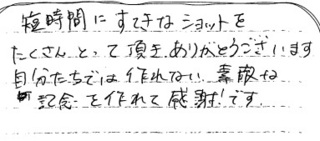 短時間にすてきなショットを
たくさんとって頂き、ありがとうございます
自分たちでは作れない素敵な
記念を作れて感謝!です。